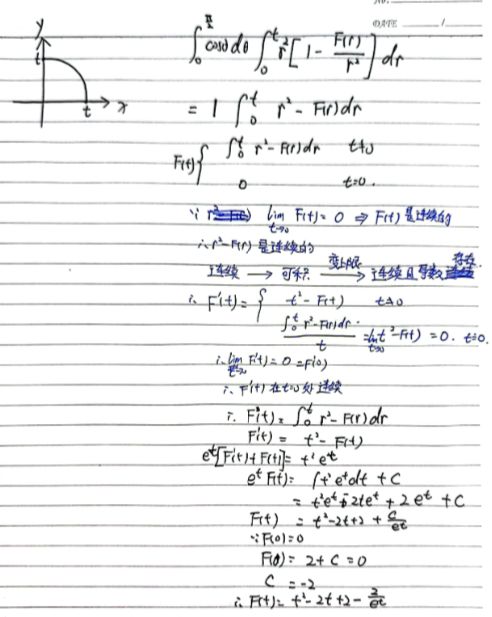 NO.
DATE /
y
t
t
x
∫₀^(π/2) cosθ dθ ∫₀^t r² [1 - F(r)/r²] dr
= 1 ∫₀^t r² - F(r) dr
F(t) { ∫₀^t r² - F(r) dr t≠0
0 t=0.
∵ lim_(t→0) F(t) = 0 ⇒ F(t) 是连续的
∴ r² - F(r) 是连续的
连续 → 可积 变上限 → 连续且导数存在
∴ F'(t) = { t² - F(t) t≠0
∫₀^t r² - F(r) dr / t = lim_(t→0) t² - F(t) = 0. t=0.
∴ lim_(t→0) F'(t) = 0 = F'(0)
∴ F'(t) 在 t=0 处连续
∴ F(t) = ∫₀^t r² - F(r) dr
F'(t) = t² - F(t)
e^t [F'(t) + F(t)] = t² e^t
e^t F(t) = ∫ t² e^t dt + C
= t² e^t - 2te^t + 2e^t + C
F(t) = t² - 2t + 2 + C/e^t
∵ F(0) = 0
F(0) = 2 + C = 0
C = -2
∴ F(t) = t² - 2t + 2 - 2/e^t